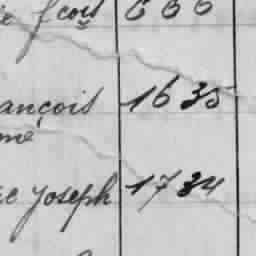 fcois 666
ançois 1635
me
Joseph 1734